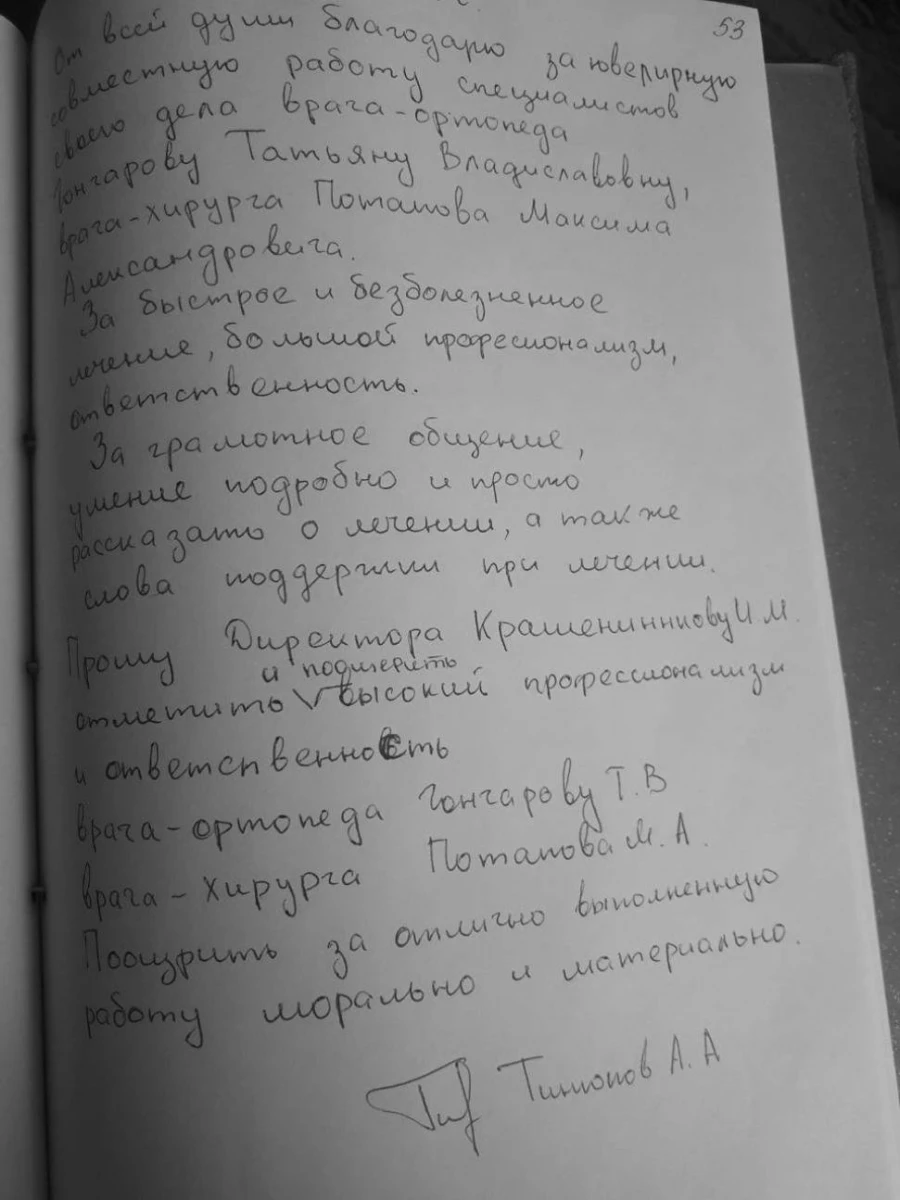 53
От всей души благодарю за ювелирную
совместную работу специалистов
своего дела врача-ортопеда
Гончарову Татьяну Владиславовну,
врача-хирурга Потапова Максима
Александровича.
За быстрое и безболезненное
лечение, большой професионализм,
ответственность.
За грамотное общение,
умение подробно и просто
рассказать о лечении, а также
слова поддержки при лечении.
Прошу Директора Крашенинникову И.М.
и
отметить V высокий профессионализм
и ответственность
врача-ортопеда Гончарову Т.В
врача-хирурга Потапова М.А.
Поощрить за отлично выполненную
работу морально и материально.
А.А